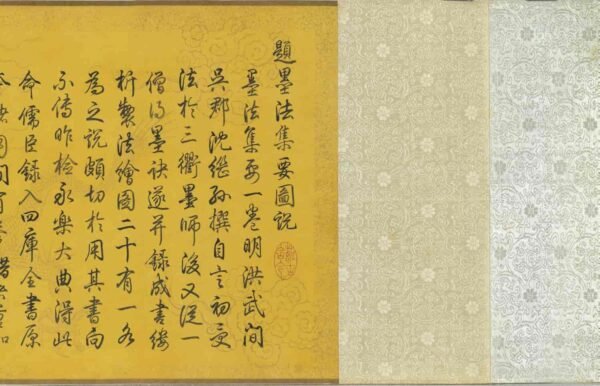 題墨法集要圖說
墨法集要一卷明洪武間
吳郡沈繼孫撰自言初受
法於三衢墨師後又從一
僧得墨訣遂并錄成書縷
析製法繪圖二十有一各
為之說頗切於用其書向
不傳昨檢永樂大典得此
命儒臣錄入四庫全書原